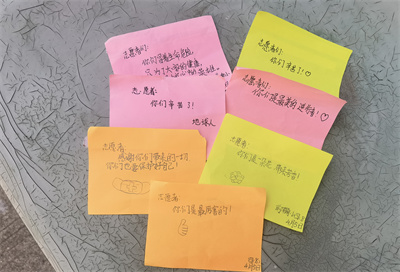 志愿者们:
你们冒着生命危险,
只为了大家的健康,
志愿者们:
你们辛苦了!♡
志愿者:
你们辛苦了!
地球人
志愿者们:
你们是最美的逆行者!♡
志愿者:
感谢你们带来的一切
你们也要保护好自己!
志愿者:
4月5日
志愿者:
你们是最厉害的!
4月5日